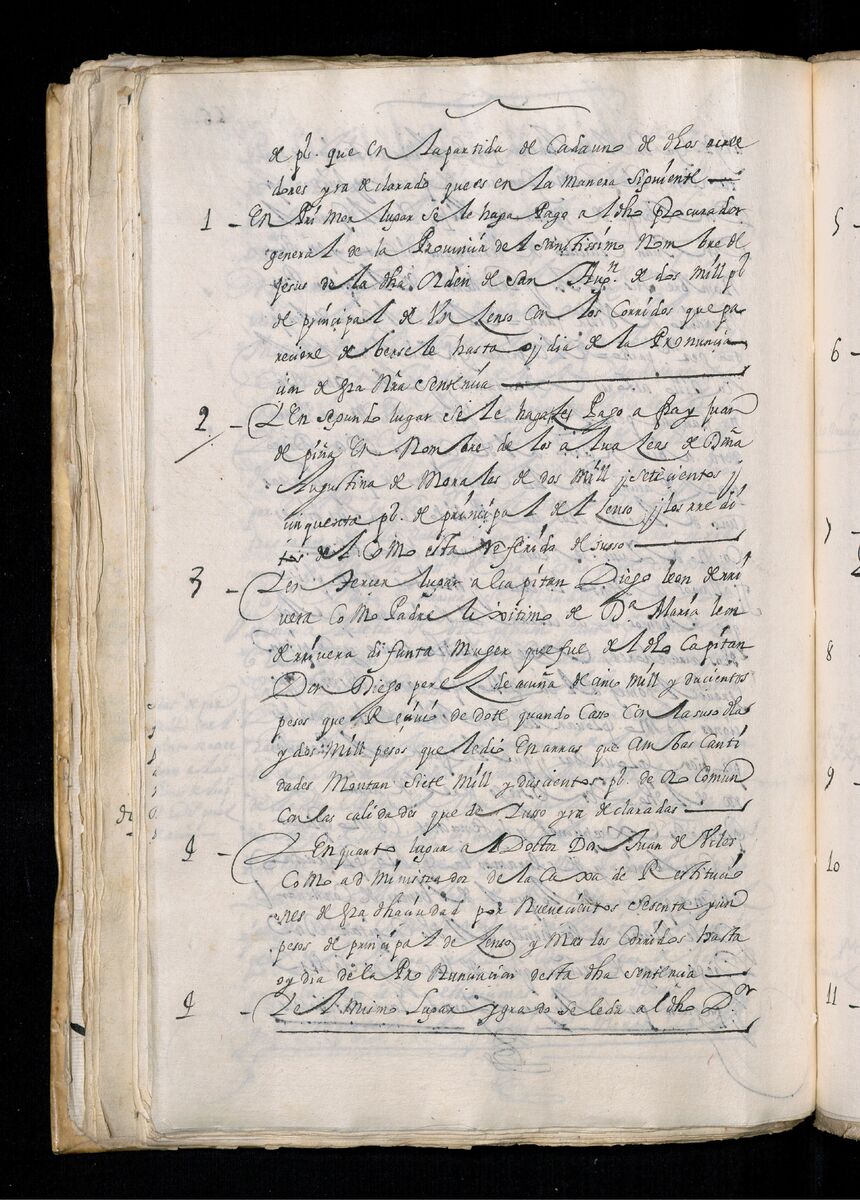 de ps. que en la partida de Cada uno de dhos acree
dores yra declarado que es en la manera siguiente
1 - En Primer lugar se le haga Pago al dho Procurador
general de la Provincia del santissimo Nombre de
Jesus de la dha Orden de san Augn. de dos mill ps
de principal de Un Censo Con los Corridos que pa
reciere deberse le hasta oy dia de la Pronuncia
cion de esta Nra sentencia
2 - En segundo lugar se le haga Pago a fray Juan
de piña En Nombre de los de Dña
Augustina de Morales de dos Mill y setecientos y
cinquenta ps. de principal del Censo y los rredi
tos del Como esta rreferido de suso
3 - en tercer lugar al capitan Diego leon de rri
vera Como Padre lexitimo de Da. Maria leon
de rrivera difunta Muger que fue del dho Capitan
Don Diego perez de acuña de cinco mill y ducientos
pesos que Recivio de dote quando Caso Con la suso dha
y dos Mill pesos que le dio En arras que ambas Canti
dades Montan siete Mill y duscientos ps. de oro Comun
Con las calidades que de suso yra declaradas
4 - En quarto lugar al Doctor Don Juan de
Como administrador de la Caxa de Restitucio
nes de esta dha ciudad por Nuevecientos sesenta y un
pesos de principal de Censo y Mas los Corridos hasta
oy dia de la Pronunciacion desta dha sentencia
4 - en el mismo lugar y grado se le da al dho Dor
5 -
6 -
7 -
8
9
10
11 -